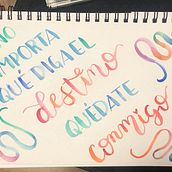 NO
IMPORTA
QUÉ DIGA EL
destino
QUÉDATE
conmigo